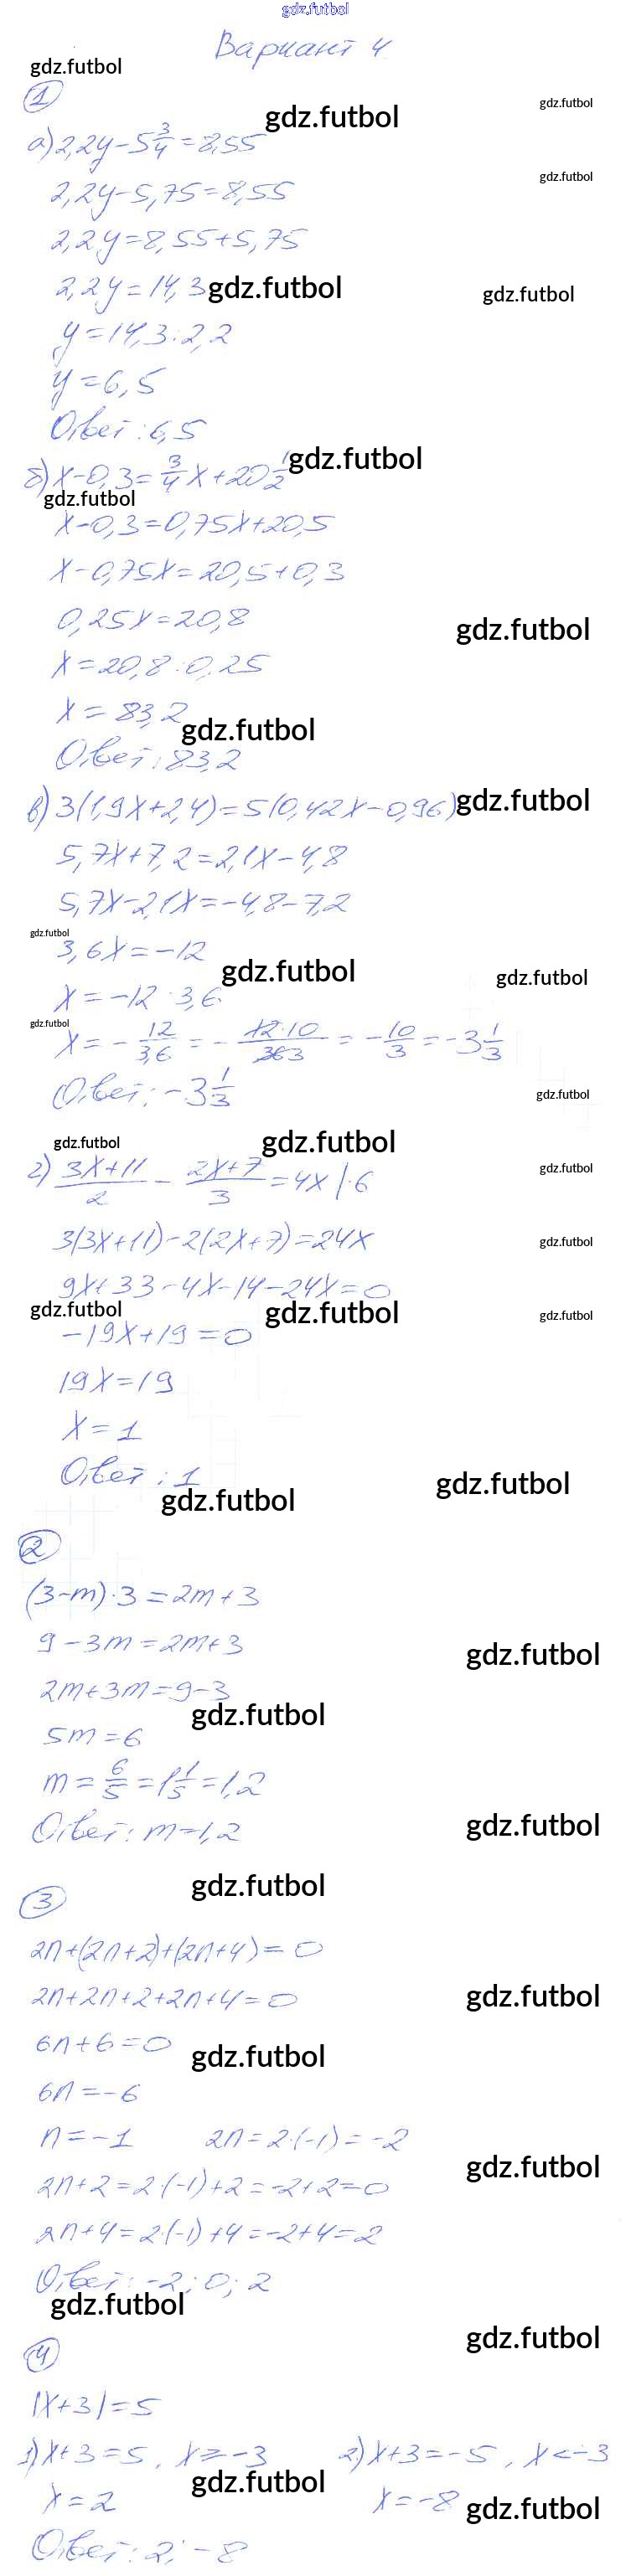 gdz.futbol
Вариант 4
gdz.futbol
1
gdz.futbol
gdz.futbol
а) 2,2y-5 3/4=8,55
gdz.futbol
2,2y-5,75=8,55
2,2y=8,55+5,75
2,2y=14,3
gdz.futbol
gdz.futbol
y=14,3:2,2
y=6,5
Ответ: 6,5
gdz.futbol
б) x-0,3=3/4x+20 1/2
gdz.futbol
x-0,3=0,75x+20,5
x-0,75x=20,5+0,3
0,25x=20,8
gdz.futbol
x=20,8:0,25
x=83,2
gdz.futbol
Ответ: 83,2
в) 3(1,9x+2,4)=5(0,42x-0,96)
gdz.futbol
5,7x+7,2=2,1x-4,8
5,7x-2,1x=-4,8-7,2
gdz.futbol
3,6x=-12
gdz.futbol
gdz.futbol
x=-12:3,6
gdz.futbol
x=-12/3,6=-12·10/363=-10/3=-3 1/3
Ответ: -3 1/3
gdz.futbol
gdz.futbol
gdz.futbol
г) 3x+11/2 - 2x+7/3=4x |·6
gdz.futbol
3(3x+11)-2(2x+7)=24x
gdz.futbol
9x+33-4x-14-24x=0
gdz.futbol
gdz.futbol
gdz.futbol
-19x+19=0
19x=19
x=1
Ответ: 1
gdz.futbol
gdz.futbol
2
(3-m)·3=2m+3
9-3m=2m+3
gdz.futbol
2m+3m=9-3
gdz.futbol
5m=6
m=6/5=1 1/5=1,2
Ответ: m=1,2
gdz.futbol
gdz.futbol
3
2n+(2n+2)+(2n+4)=0
2n+2n+2+2n+4=0
gdz.futbol
6n+6=0
gdz.futbol
6n=-6
n=-1 2n=2·(-1)=-2
gdz.futbol
2n+2=2·(-1)+2=-2+2=0
2n+4=2·(-1)+4=-2+4=2
Ответ: -2; 0; 2
gdz.futbol
gdz.futbol
4
|x+3|=5
1) x+3=5, x≥-3 2) x+3=-5, x<-3
gdz.futbol
x=2 x=-8
gdz.futbol
Ответ: 2; -8